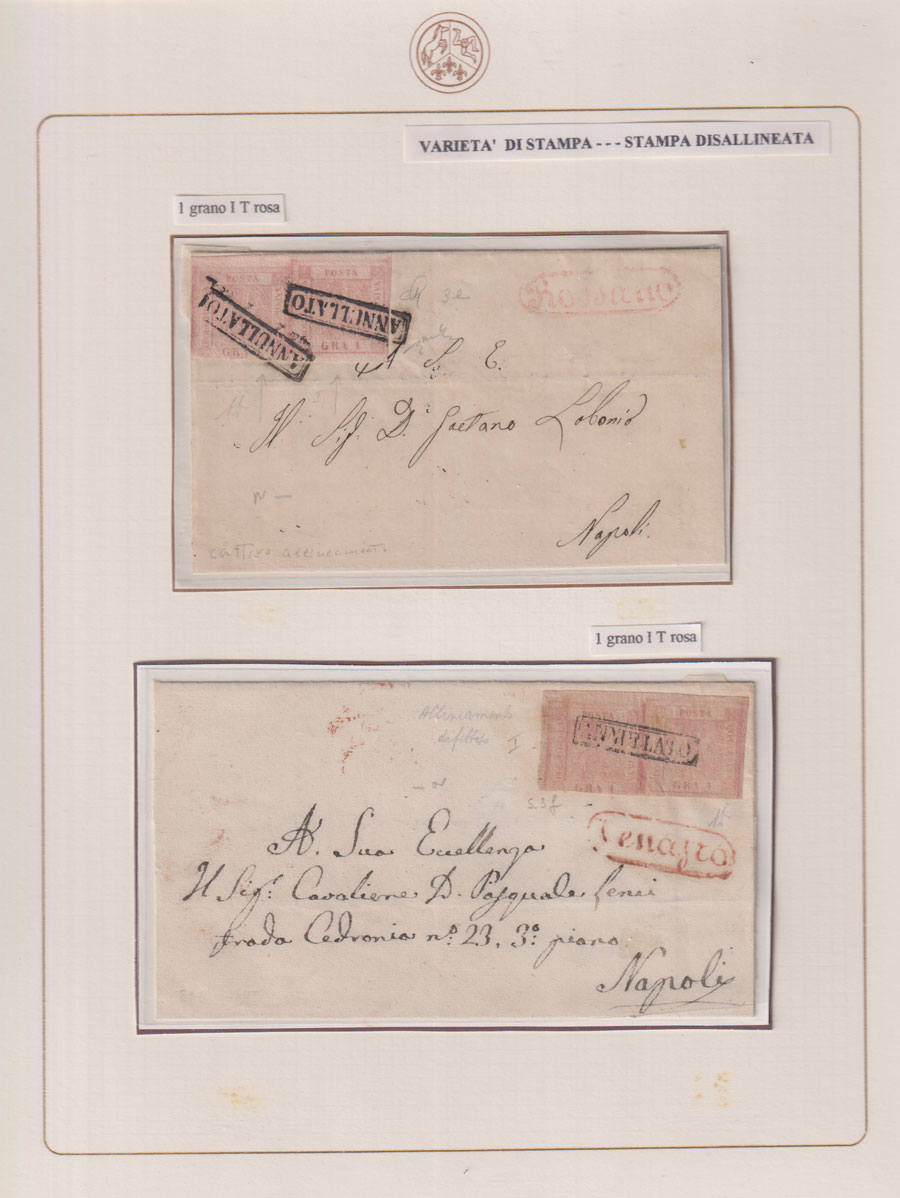 VARIETA' DI STAMPA - - - STAMPA DISALLINEATA
1 grano I T rosa
POSTA
POSTA
ANNULLATO
ANNULLATO
GRA 1
GRA 1
Rossano
S. E.
Il Sig. D. Gaetano Lobonio
Napoli.
cattivo
1 grano I T rosa
Allineamento
difettoso
POSTA
ANNULLATO
GRA 1
GRA 1
Venafro
A Sua Eccellenza
Il Sigr. Cavaliere D. Pasquale
strada Cedronia nº 23, 3º piano
Napoli